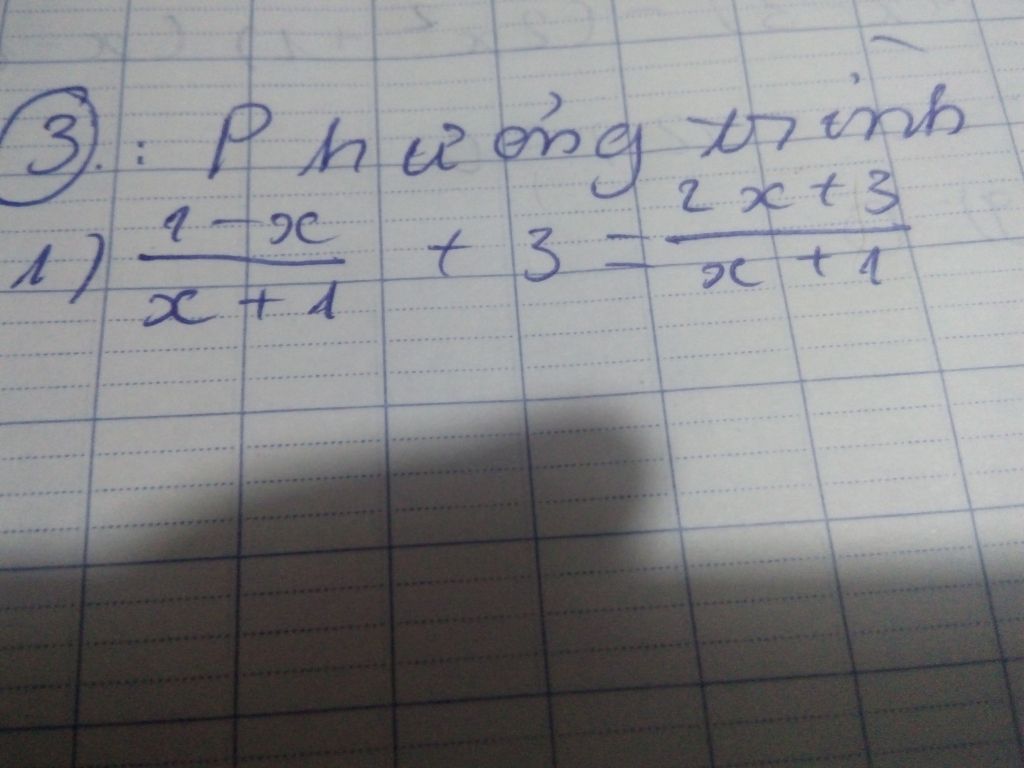 3.: Phương trình
1) \frac{1-x}{x+1} + 3 = \frac{2x+3}{x+1}